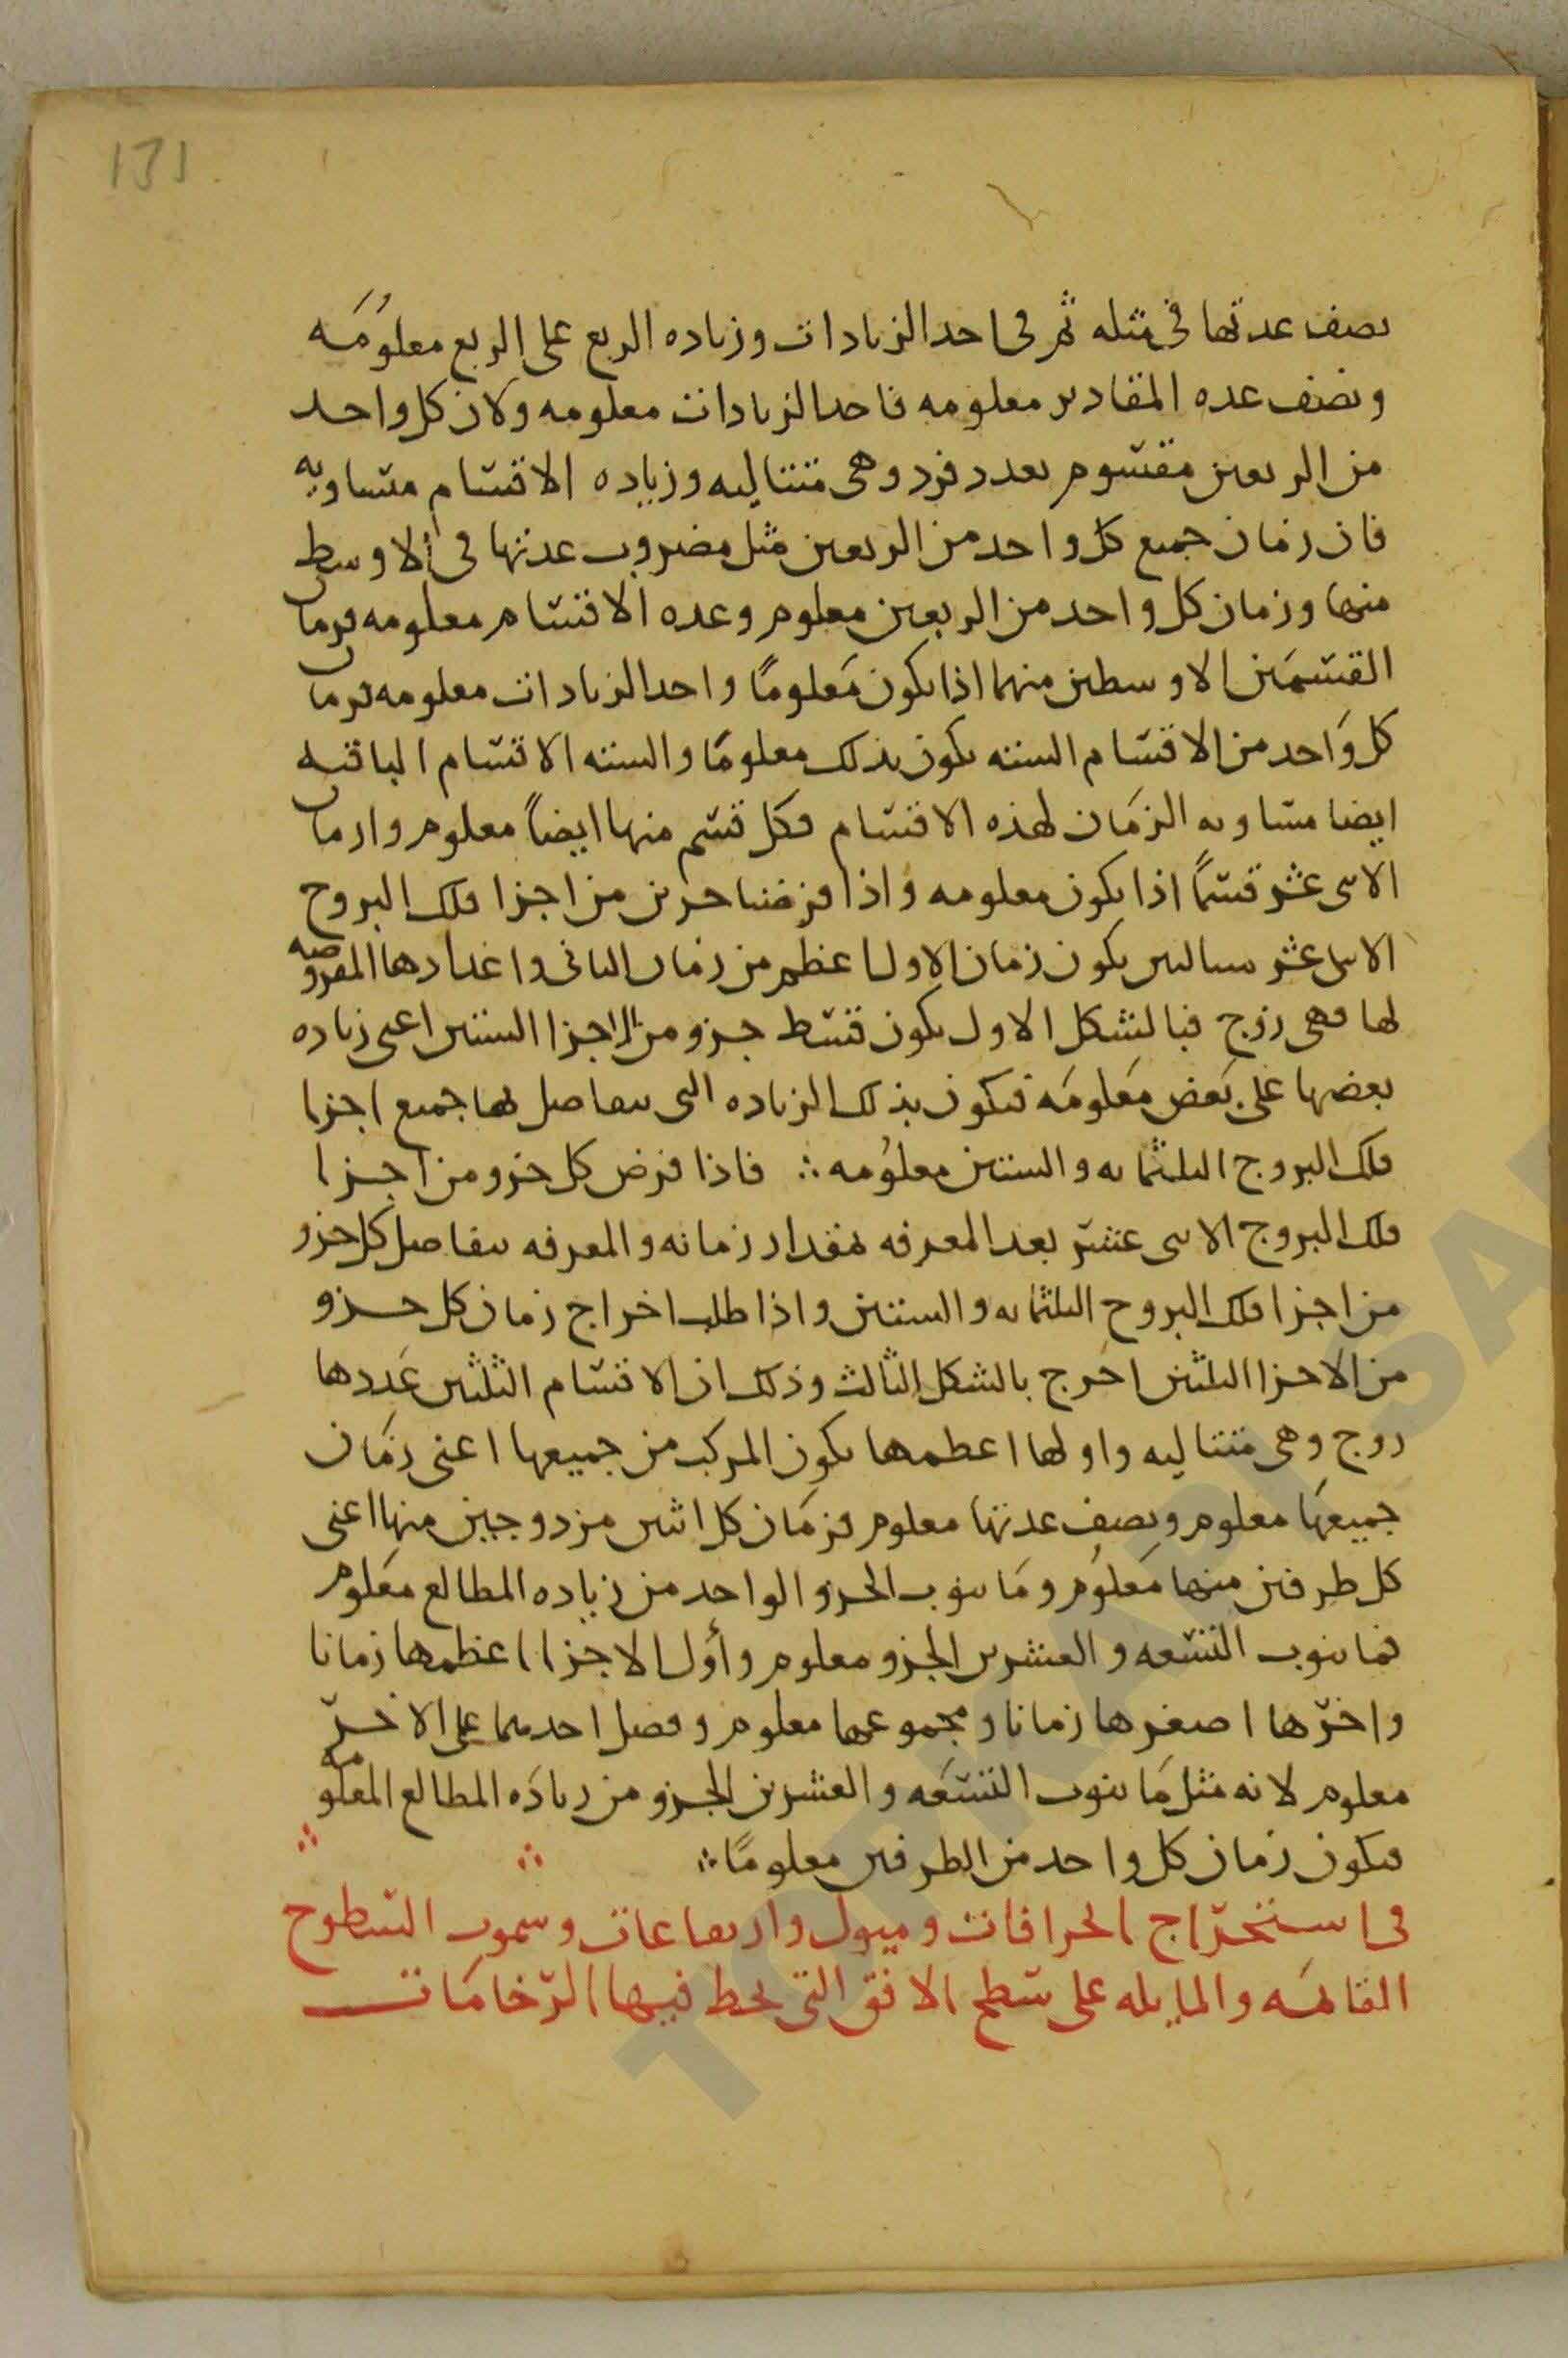 131
نصف عدتها فى مثله ثم فى احد الزيادات وزياده الربع على الربع معلومه
ونصف عده المقادير معلومه فاحد الزيادات معلومه ولان كل واحد
من الربعين مقسوم بعدد فرد وهى متتاليه وزياده الاقسام متساويه
فان زمان جميع كل واحد من الربعين مثل مضروب عدتها فى الاوسط
منها وزمان كل واحد من الربعين معلوم وعده الاقسام معلومه فزمان
القسمين الاوسطين منهما اذا يكون معلومًا واحد الزيادات معلومه فزمان
كل واحد من الاقسام السته يكون بذلك معلومًا والسته الاقسام الباقيه
ايضا متساويه الزمان لهذه الاقسام فكل قسم منها ايضاً معلوم وازمان
الاثنى عشر قسمًا اذا يكون معلومه واذا فرضنا جزين من اجزا فلك البروج
الاثنى عشر متتاليين يكون زمان الاول اعظم من زمان الثانى واعدادها المفروضه
لها فهى زوج فبالشكل الاول يكون قسط جزو من الاجزا الستين اعنى زياده
بعضها على بعض معلومه فيكون بذلك الزياده التى يتفاضل بها جميع اجزا
فلك البروج الثلثمائه والستين معلومه ∴ فاذا فرض كل جزو من اجزا
فلك البروج الاثنى عشر بعد المعرفه بمقدار زمانه والمعرفه بتفاضل كل جزو
من اجزا فلك البروج الثلثمائه والستين واذا طلب اخراج زمان كل جزو
من الاجزا الثلثين اخرج بالشكل الثالث وذلك ان الاقسام الثلثين عددها
زوج وهى متتاليه واولها اعظمها يكون المركب من جميعها اعنى زمان
جميعها معلوم ونصف عدتها معلوم فزمان كل اثنين مزدوجين منها اعنى
كل طرفين منها معلوم وما ينوب الجزو الواحد من زياده المطالع معلوم
فما ينوب التسعه والعشرين الجزو معلوم وأول الاجزا اعظمها زمانا
واخرها اصغرها زمانا ومجموعهما معلوم وفضل احدهما على الاخر
معلوم لانه مثل ما ينوب التسعه والعشرين الجزو من زياده المطالع المعلومه
فيكون زمان كل واحد من الطرفين معلومًا ∴ ∴ ∴
فى استخراج انحرافات وميول وارتفاعات وسموت السطوح
القائمه والمايله على سطح الافق التى يخط فيها الرخامات
TOPKAPI SA